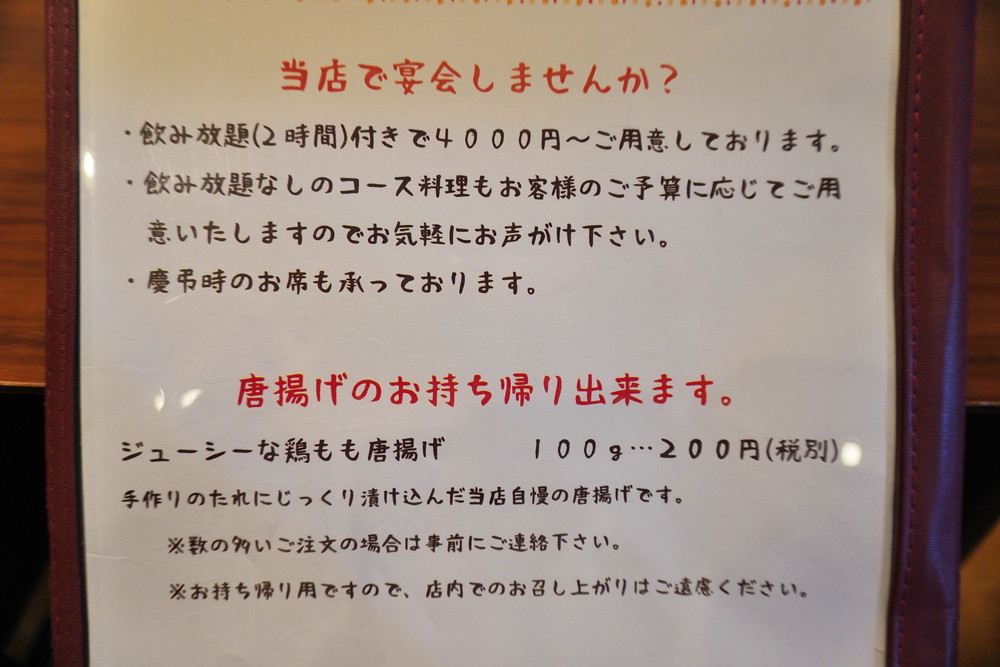 当店で宴会しませんか？
・飲み放題(２時間)付きで４０００円～ご用意しております。
・飲み放題なしのコース料理もお客様のご予算に応じてご用
意いたしますのでお気軽にお声がけ下さい。
・慶弔時のお席も承っております。
唐揚げのお持ち帰り出来ます。
ジューシーな鶏もも唐揚げ　　　１００ｇ…２００円(税別)
手作りのたれにじっくり漬け込んだ当店自慢の唐揚げです。
※数の多いご注文の場合は事前にご連絡下さい。
※お持ち帰り用ですので、店内でのお召し上がりはご遠慮ください。